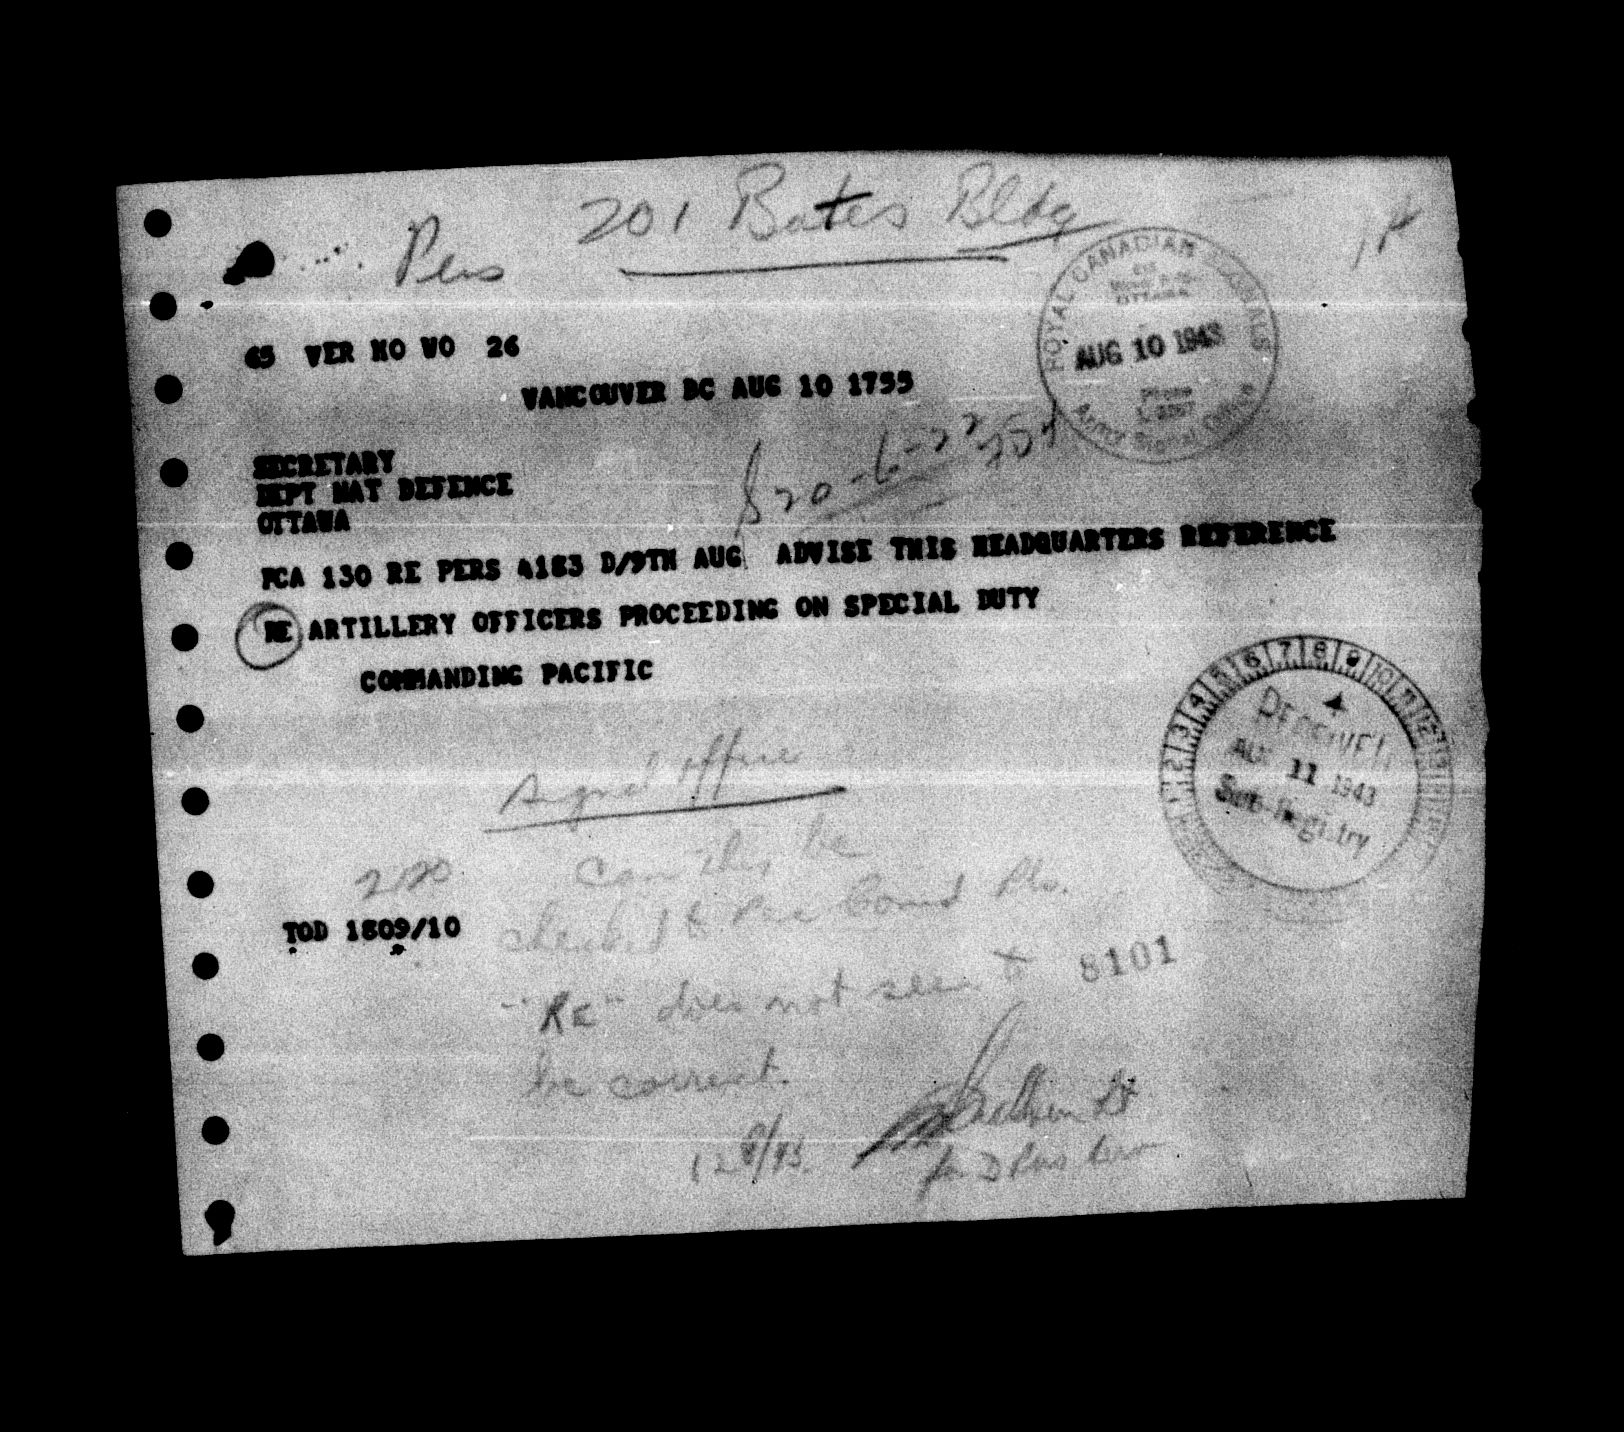 201 Bates Bldg
Pens
ROYAL CANADIAN SIGNALS
OTTAWA
AUG 10 1943
Phone
Army Signal Office
65 VER NO WO 26
VANCOUVER BC AUG 10 1755
SECRETARY
DEPT NAT DEFENCE
OTTAWA
20-6-22
PCA 130 RE PERS 4183 D/9TH AUG ADVISE THIS HEADQUARTERS REFERENCE
RE ARTILLERY OFFICERS PROCEEDING ON SPECIAL DUTY
COMMANDING PACIFIC
1 2 3 4 5 6 7 8 9 10 11 12
Received
AUG 11 1943
Sub-Registry
Signal office
can this be
checked & Pac Comd Pls.
2120
TOD 1809/10
8101
"RE" does not seem to
be correct.
12 8/43